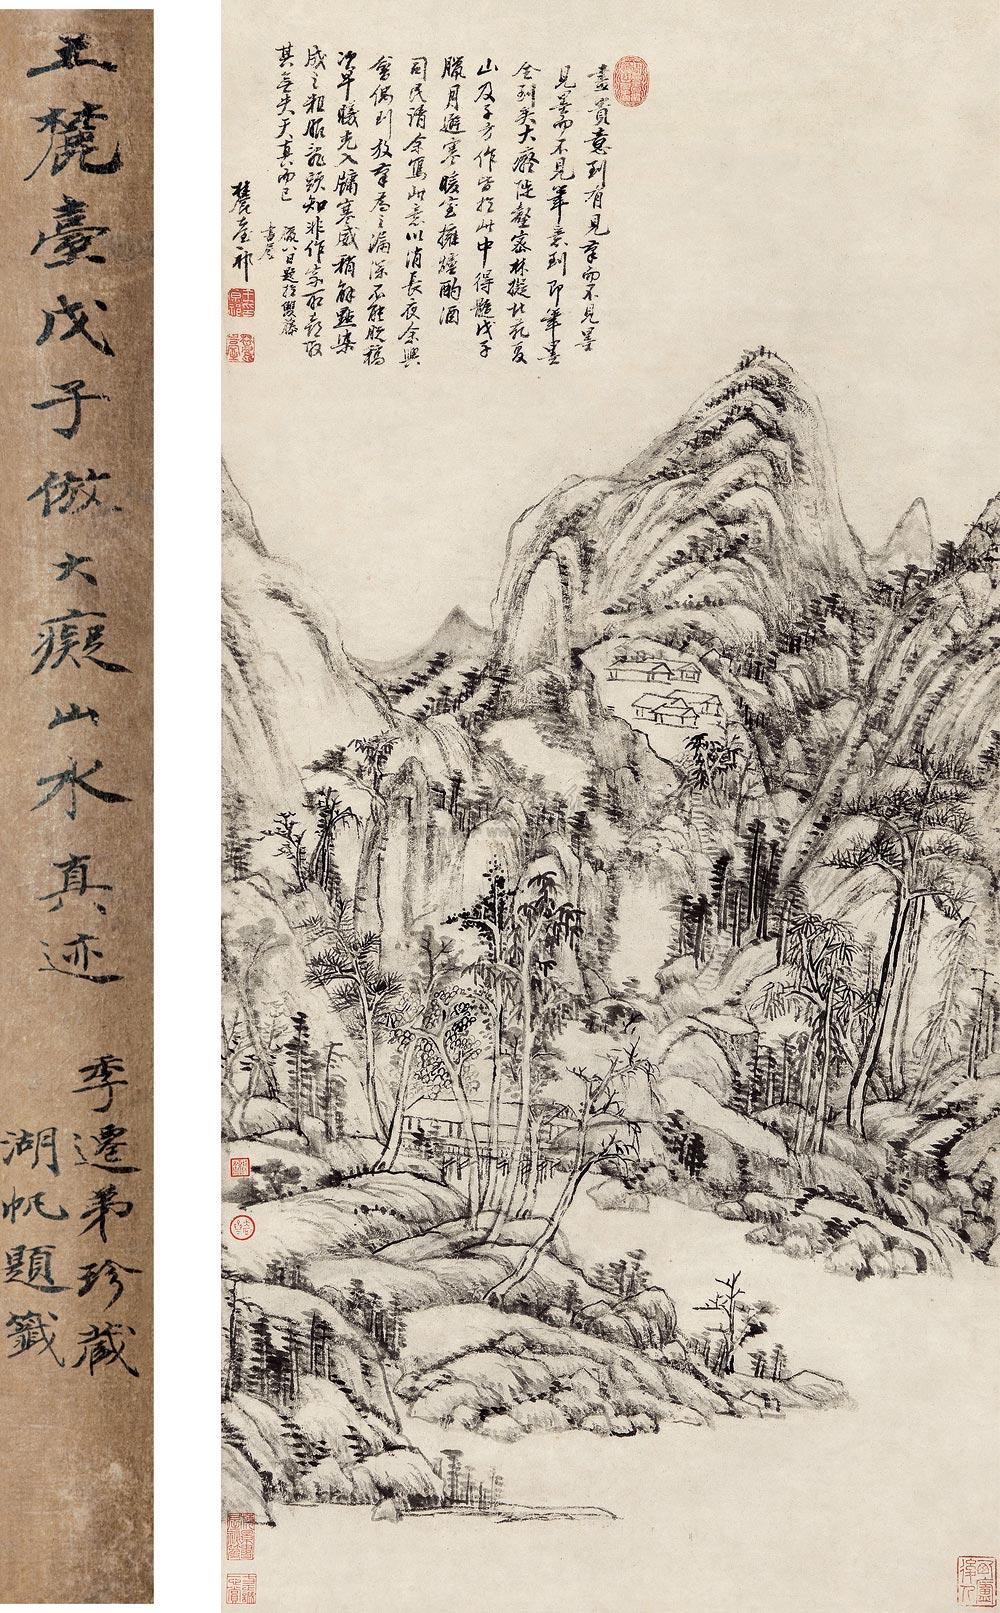 王麓臺戊子倣大癡山水真迹
季遷弟珍藏
湖帆題籤
畫貴意到有見筆而不見墨
見墨而不見筆意到即筆墨
全到矣大癡陡壑密林擬北苑夏
山及子方作皆於此中得髓戊子
臘月避寒暖室擁爐酌酒
司民請余寫此意以消長夜余興
會偶到放筆為之漏深不能脫稿
次早曦光入牖寒威稍解點染
成之粗服亂頭知非作家所喜取
其無失天真而已
嘉八日題於雙藤
書屋
麓臺祁